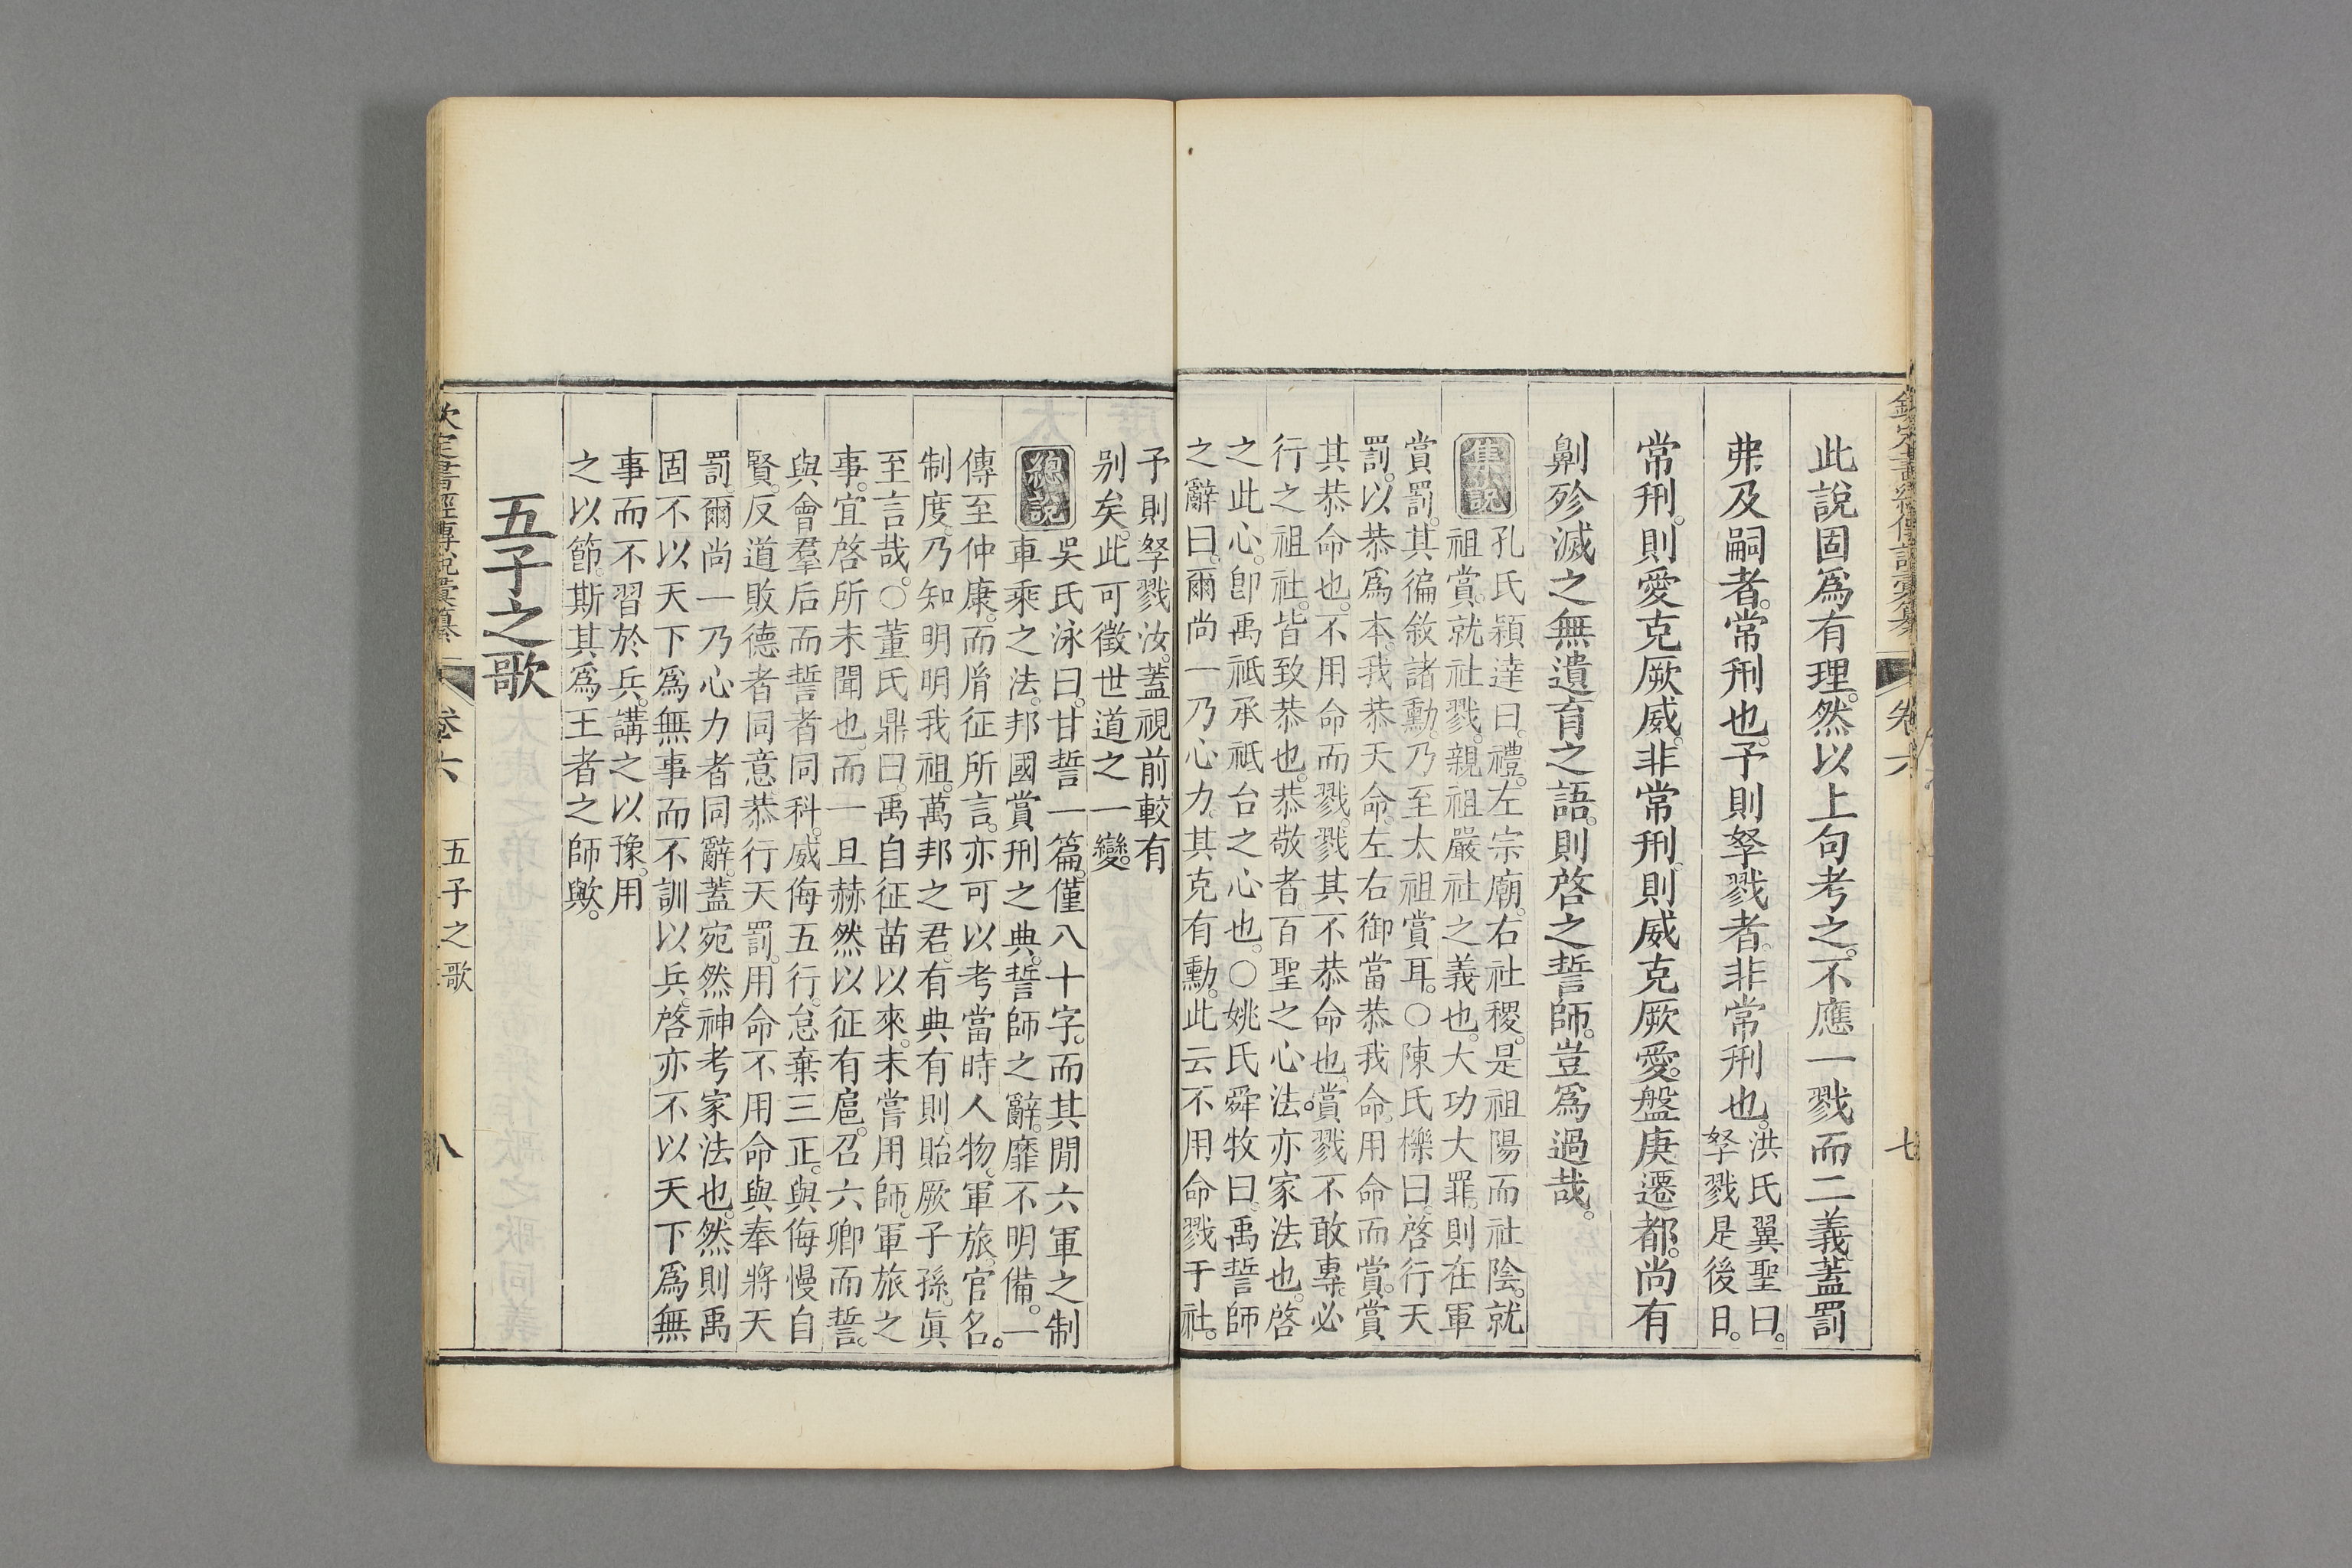 此說固爲有理。然以上句考之。不應一戮而二義。蓋罰
弗及嗣者。常刑也。予則孥戮者。非常刑也。洪氏翼聖曰。
孥戮是後日。
常刑。則愛克厥威。非常刑。則威克厥愛。盤庚遷都。尚有
劓殄滅之無遺育之語。則啓之誓師。豈爲過哉。
集說
孔氏穎達曰。禮。左宗廟。右社稷。是祖陽而社陰。就
祖賞。就社戮。親祖嚴社之義也。大功大罪。則在軍
賞罰。其徧敘諸勳。乃至太祖賞耳。○陳氏櫟曰。啓行天
罰。以恭爲本。我恭天命。左右御當恭我命。用命而賞。賞
其恭命也。不用命而戮。戮其不恭命也。賞戮不敢專。必
行之祖社。皆致恭也。恭敬者。百聖之心法。亦家法也。啓
之此心。卽禹祗承祗台之心也。○姚氏舜牧曰。禹誓師
之辭曰。爾尚一乃心力。其克有勳。此云不用命戮于社。
予則孥戮汝。蓋視前較有
别矣。此可徵世道之一變。
總說
吳氏泳曰。甘誓一篇。僅八十字。而其閒六軍之制
車乘之法。邦國賞刑之典。誓師之辭。靡不明備。一
傳至仲康。而胤征所言。亦可以考當時人物。軍旅。官名。
制度。乃知明明我祖。萬邦之君。有典有則。貽厥子孫。眞
至言哉。○董氏鼎曰。禹自征苗以來。未嘗用師。軍旅之
事。宜啓所未聞也。而一旦赫然以征有扈。召六卿而誓。
與會羣后而誓者同科。威侮五行。怠棄三正。與侮慢自
賢。反道敗德者同意。恭行天罰。用命不用命。與奉將天
罰。爾尚一乃心力者同辭。蓋宛然神考家法也。然則禹
固不以天下爲無事而不訓以兵。啓亦不以天下爲無
事而不習於兵。講之以豫。用
之以節。斯其爲王者之師歟。
五子之歌
欽定書經傳說彙纂 卷六 五子之歌 八
欽定書經傳說彙纂 卷六 七